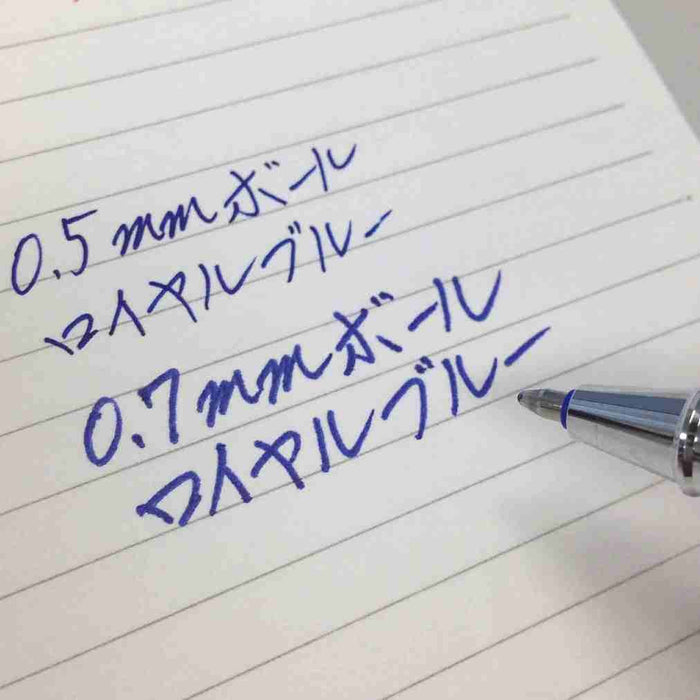 0.5mmボール
ロイヤルブルー
0.7mmボール
ロイヤルブルー